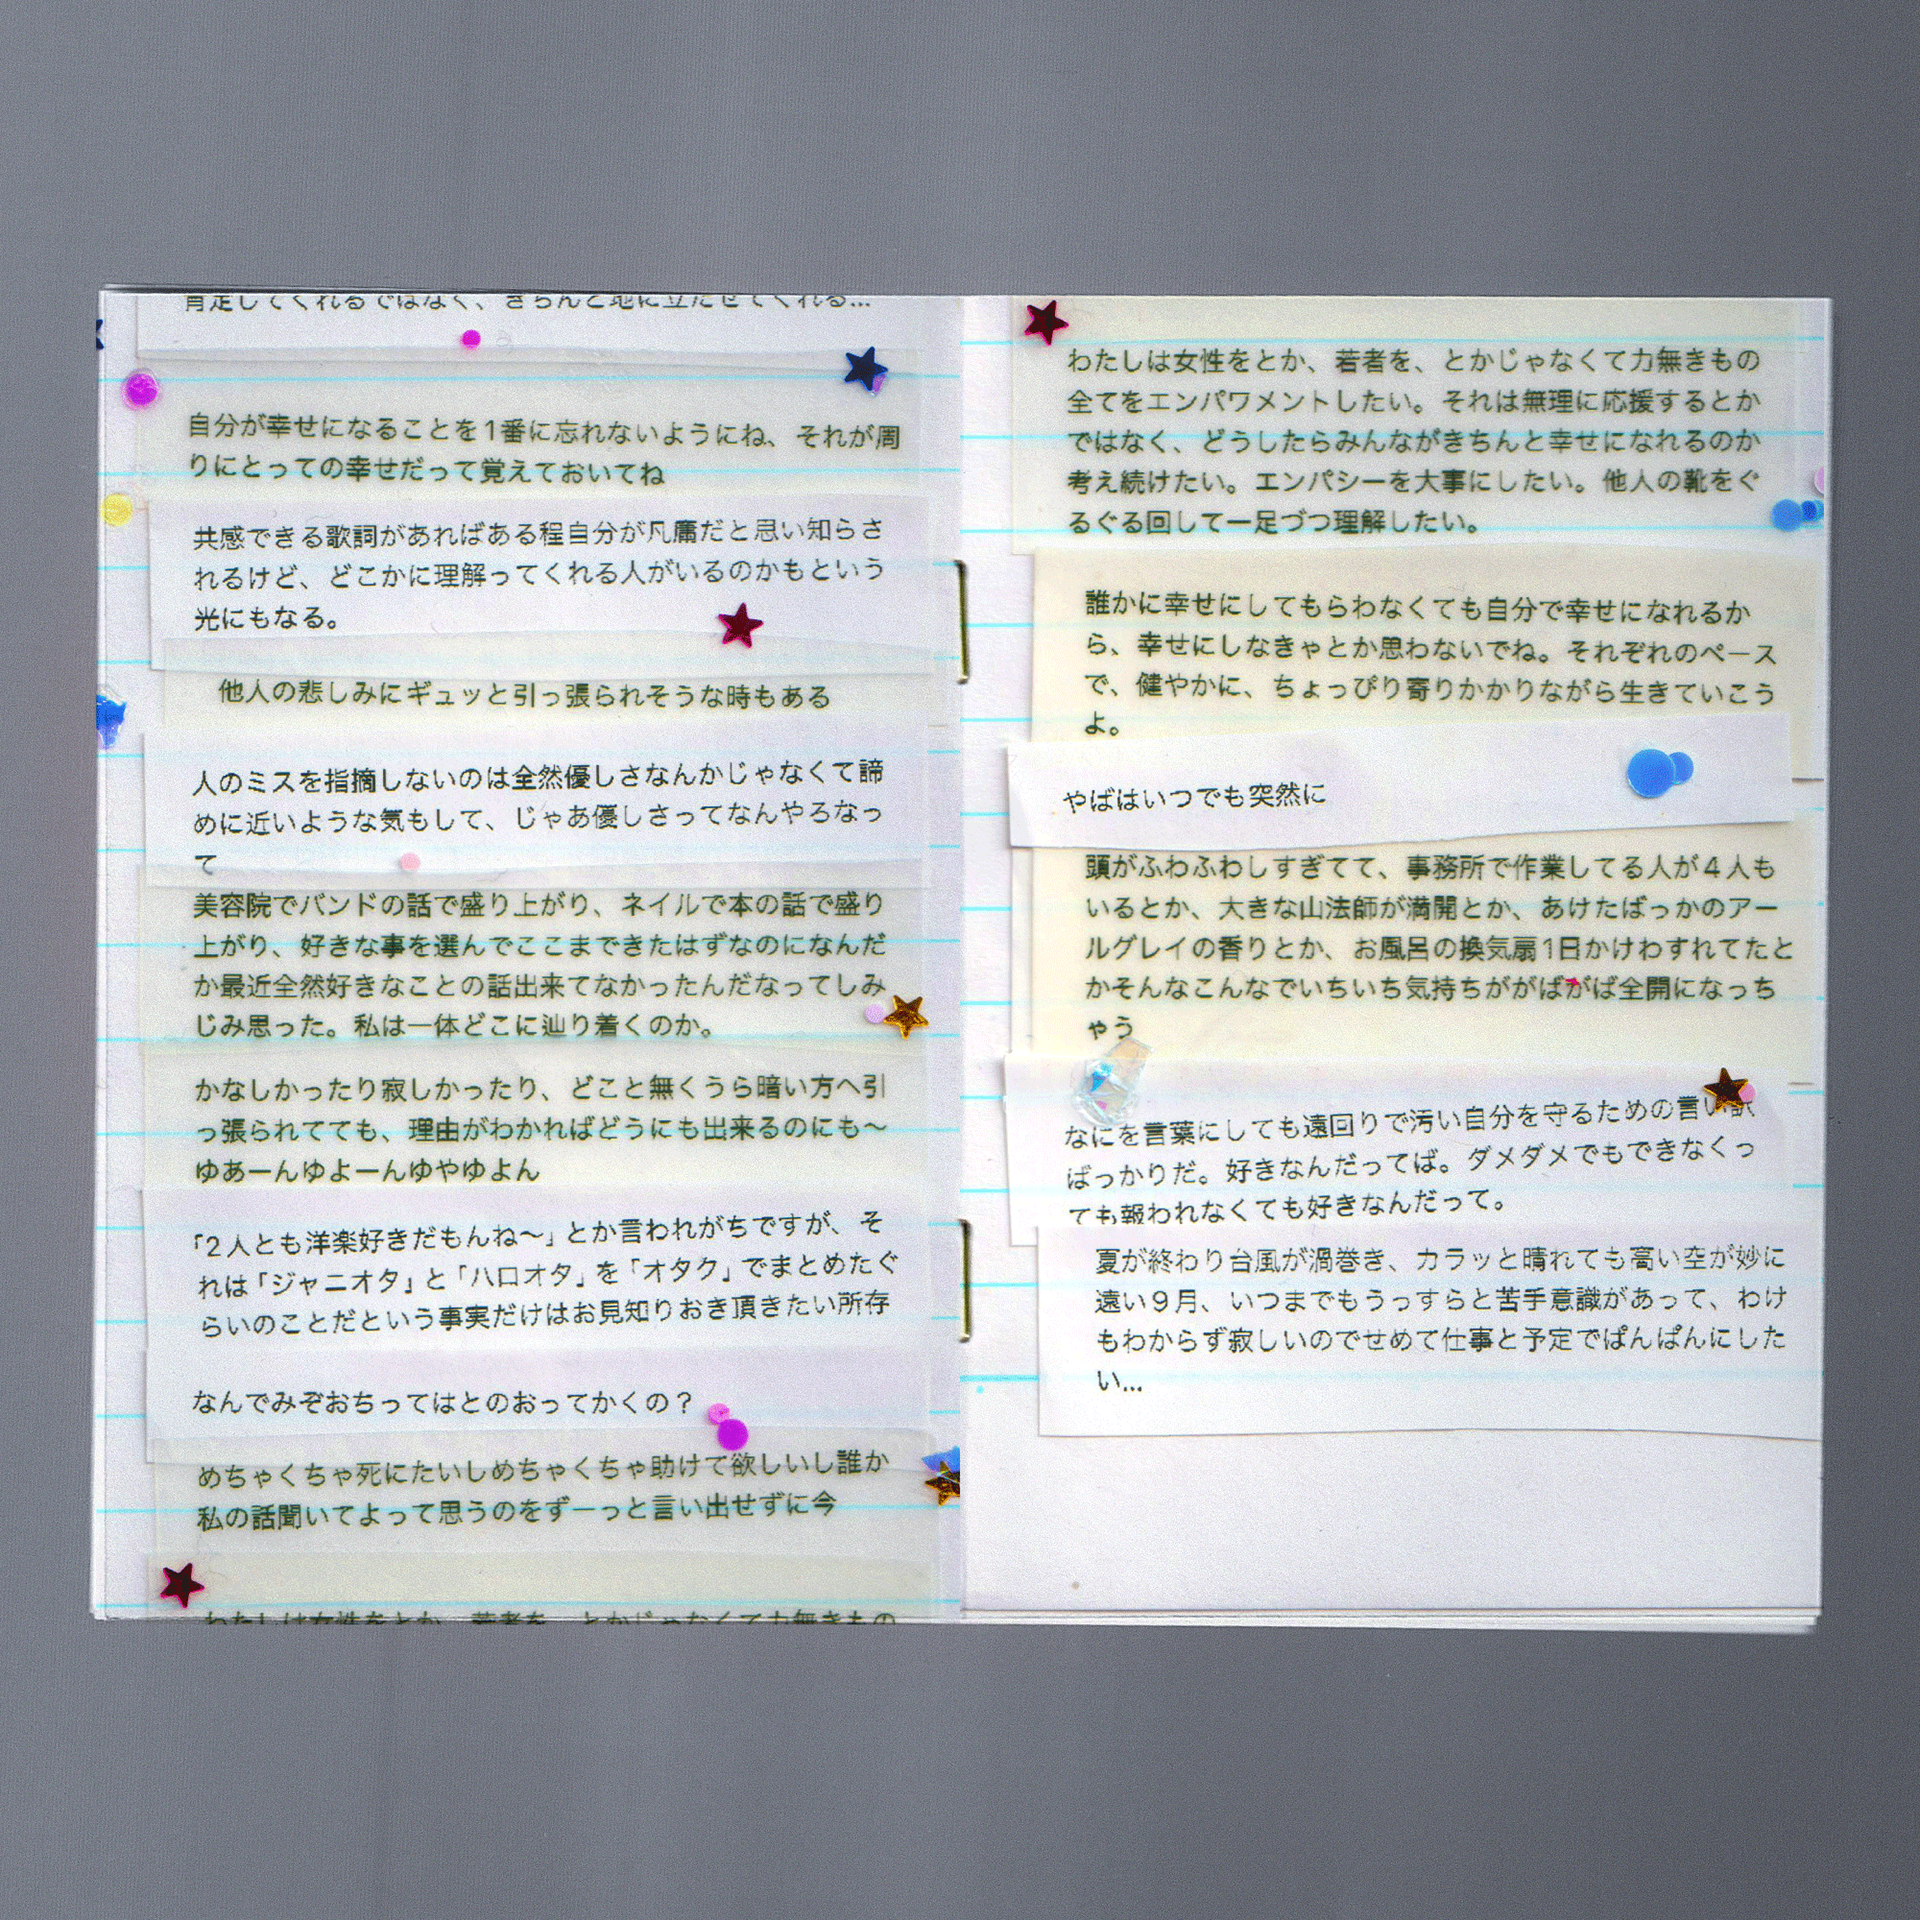 肯定してくれるではなく、きちんと地に立たせてくれる…
自分が幸せになることを1番に忘れないようにね、それが周
りにとっての幸せだって覚えておいてね
共感できる歌詞があればある程自分が凡庸だと思い知らさ
れるけど、どこかに理解ってくれる人がいるのかもという
光にもなる。
他人の悲しみにギュッと引っ張られそうな時もある
人のミスを指摘しないのは全然優しさなんかじゃなくて諦
めに近いような気もして、じゃあ優しさってなんやろなっ
て
美容院でバンドの話で盛り上がり、ネイルで本の話で盛り
上がり、好きな事を選んでここまできたはずなのになんだ
か最近全然好きなことの話出来てなかったんだなってしみ
じみ思った。私は一体どこに辿り着くのか。
かなしかったり寂しかったり、どこと無くうら暗い方へ引
っ張られてても、理由がわかればどうにも出来るのにも〜
ゆあーんゆよーんゆやゆよん
「2人とも洋楽好きだもんね〜」とか言われがちですが、そ
れは「ジャニオタ」と「ハロオタ」を「オタク」でまとめたぐ
らいのことだという事実だけはお見知りおき頂きたい所存
なんでみぞおちってはとのおってかくの？
めちゃくちゃ死にたいしめちゃくちゃ助けて欲しいし誰か
私の話聞いてよって思うのをずーっと言い出せずに今
わたしは女性をとか、若者を、とかじゃなくて力無きもの
わたしは女性をとか、若者を、とかじゃなくて力無きもの
全てをエンパワメントしたい。それは無理に応援するとか
ではなく、どうしたらみんながきちんと幸せになれるのか
考え続けたい。エンパシーを大事にしたい。他人の靴をぐ
るぐる回して一足づつ理解したい。
誰かに幸せにしてもらわなくても自分で幸せになれるか
ら、幸せにしなきゃとか思わないでね。それぞれのペース
で、健やかに、ちょっぴり寄りかかりながら生きていこう
よ。
やばはいつでも突然に
頭がふわふわしすぎてて、事務所で作業してる人が4人も
いるとか、大きな山法師が満開とか、あけたばっかのアー
ルグレイの香りとか、お風呂の換気扇1日かけわすれてたと
かそんなこんなでいちいち気持ちががばがば全開になっち
ゃう
なにを言葉にしても遠回りで汚い自分を守るための言い訳
ばっかりだ。好きなんだってば。ダメダメでもできなくっ
ても報われなくても好きなんだって。
夏が終わり台風が渦巻き、カラッと晴れても高い空が妙に
遠い9月、いつまでもうっすらと苦手意識があって、わけ
もわからず寂しいのでせめて仕事と予定でぱんぱんにした
い…